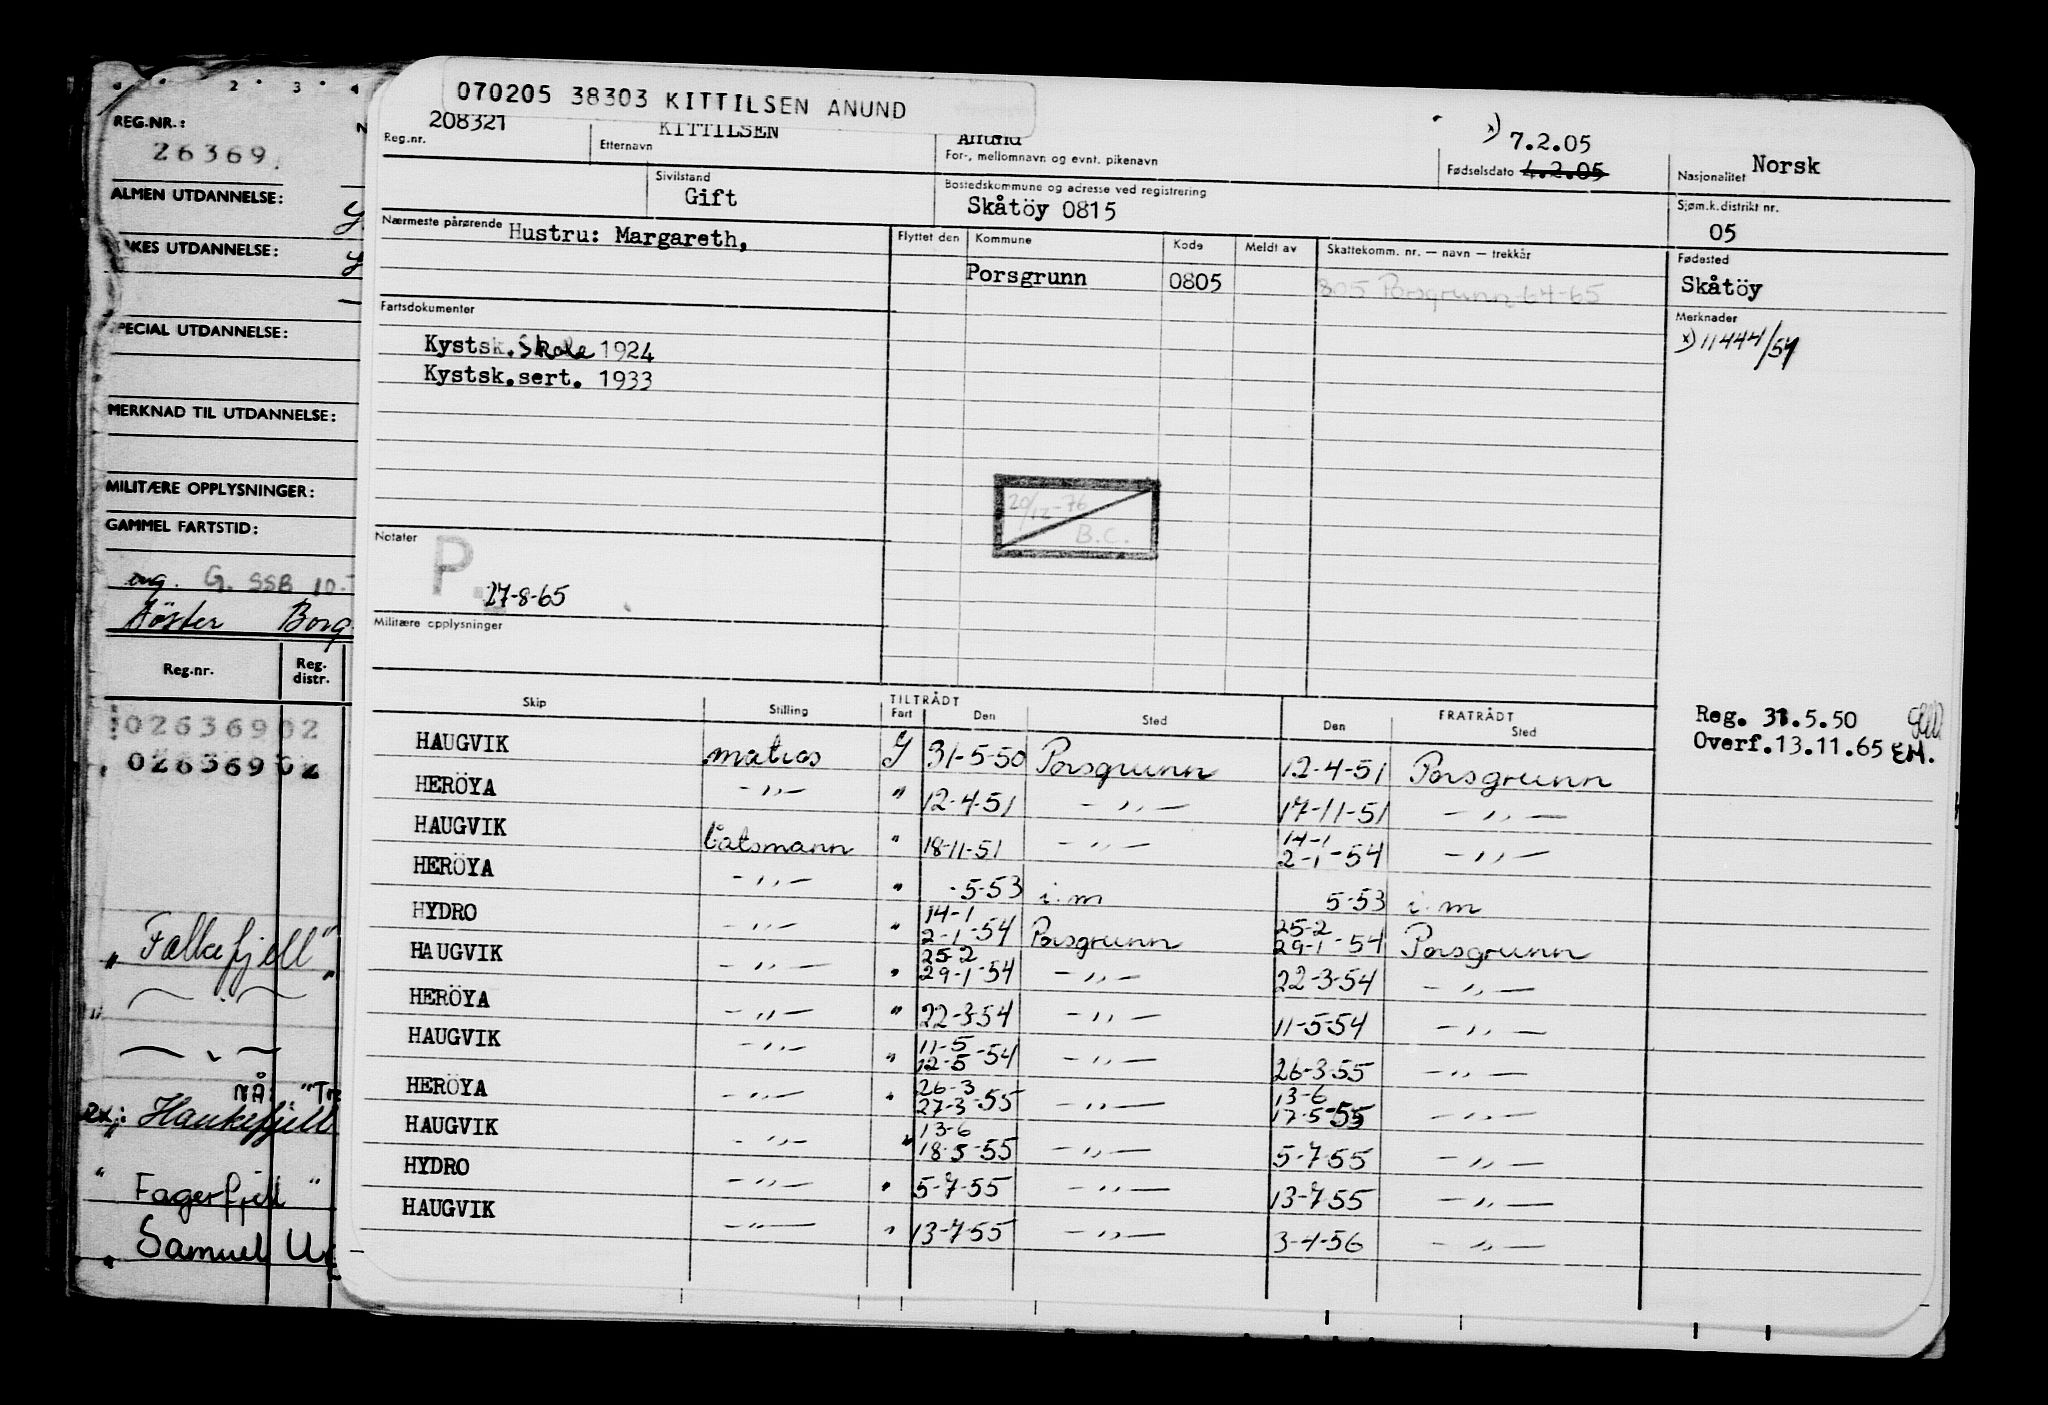 070205 38303 KITTILSEN ANUND
208321 KITTILSEN Anund x) 7.2.05 Norsk
Reg.nr. Etternavn For-, mellomnavn og evnt. pikenavn Fødselsdato 4.2.05 Nasjonalitet
Sivilstand Bostedskommune og adresse ved registrering Sjøm.k.distrikt nr.
Gift Skåtöy 0815 05
Nærmeste pårørende Hustru: Margareth, Flyttet den Kommune Kode Meldt av Skattekomm. nr. — navn — trekkår Fødested
Porsgrunn 0805 805 Porsgrunn 64-65 Skåtöy
Fartsdokumenter Merknader
Kystsk.Skole 1924 x) 11444/54
Kystsk.sert. 1933
20/12-76
B.C.
Notater
P.
27-8-65
Militære opplysninger
Reg. 31.5.50
Overf.13.11.65 EM.
TILTRÅDT FRATRÅDT
Skip Stilling Fart Den Sted Den Sted
HAUGVIK matros Y 31-5-50 Porsgrunn 12-4-51 Porsgrunn
HERÖYA -„- " 12-4-51 -„- 17-11-51 -„-
HAUGVIK båtsmann " 18-11-51 -„- 14-1 2-1-54 -„-
HERÖYA -„- " -5-53 i.m 5-53 i.m
HYDRO -„- " 14-1 2-1-54 Porsgrunn 25-2 29-1-54 Porsgrunn
HAUGVIK -„- " 25-2 29-1-54 -„- 22-3-54 -„-
HERÖYA -„- " 22-3-54 -„- 11-5-54 -„-
HAUGVIK -„- " 11-5 12-5-54 -„- 26-3-55 -„-
HERÖYA -„- " 26-3 27-3-55 -„- 13-6 17-5-55 -„-
HAUGVIK -„- " 13-6 18-5-55 -„- 5-7-55 -„-
HYDRO -„- " 5-7-55 -„- 13-7-55 -„-
HAUGVIK -„- " 13-7-55 -„- 3-4-56 -„-
2 3 4
REG.NR.:
26369
ALMEN UTDANNELSE:
UTDANNELSE:
UTDANNELSE:
MERKNAD TIL UTDANNELSE:
MILITÆRE OPPLYSNINGER:
GAMMEL FARTSTID:
G. SSB 10-
Borg
Reg.nr. Reg. distr.
026369 02
026369 02
„ Falkefjell"
NÅ:
ex.: Haukefjell
" Fagerfjell "
" Samuel